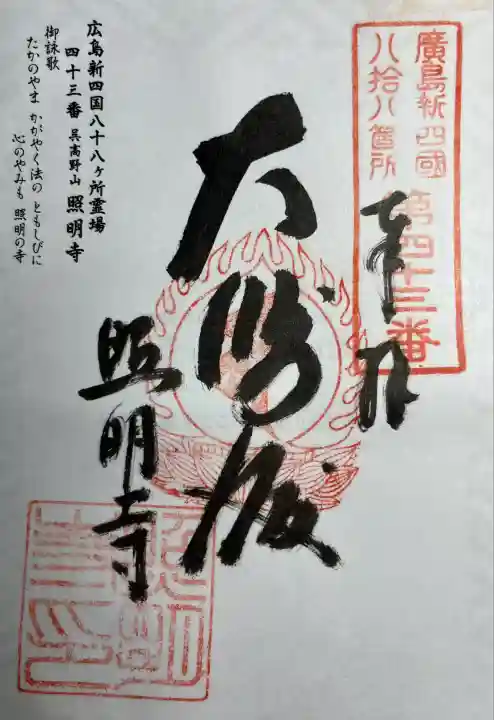 廣島新四國
八拾八箇所 第四十三番
奉拝
大師殿
照明寺
広島新四国八十八ヶ所霊場
四十三番 呉高野山 照明寺
御詠歌
たかのやま かがやく法の ともしびに
心のやみも 照明の寺